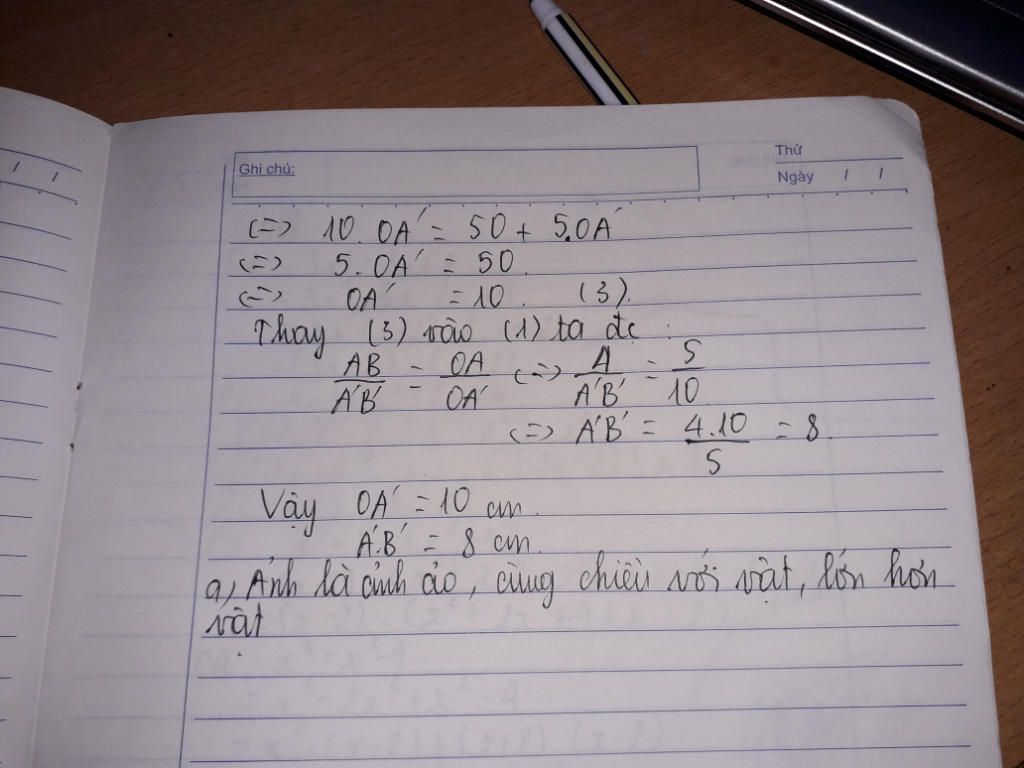 Ghi chú:
Thứ
Ngày / /
<=> 10. OA' = 50 + 5.OA'
<=> 5. OA' = 50.
<=> OA' = 10. (3).
Thay (3) vào (1) ta đc.
AB/A'B' = OA/OA' <=> 4/A'B' = 5/10
<=> A'B' = 4.10/5 = 8
Vậy OA' = 10 cm.
A'B' = 8 cm.
a, Ảnh là ảnh ảo, cùng chiều với vật, lớn hơn
vật